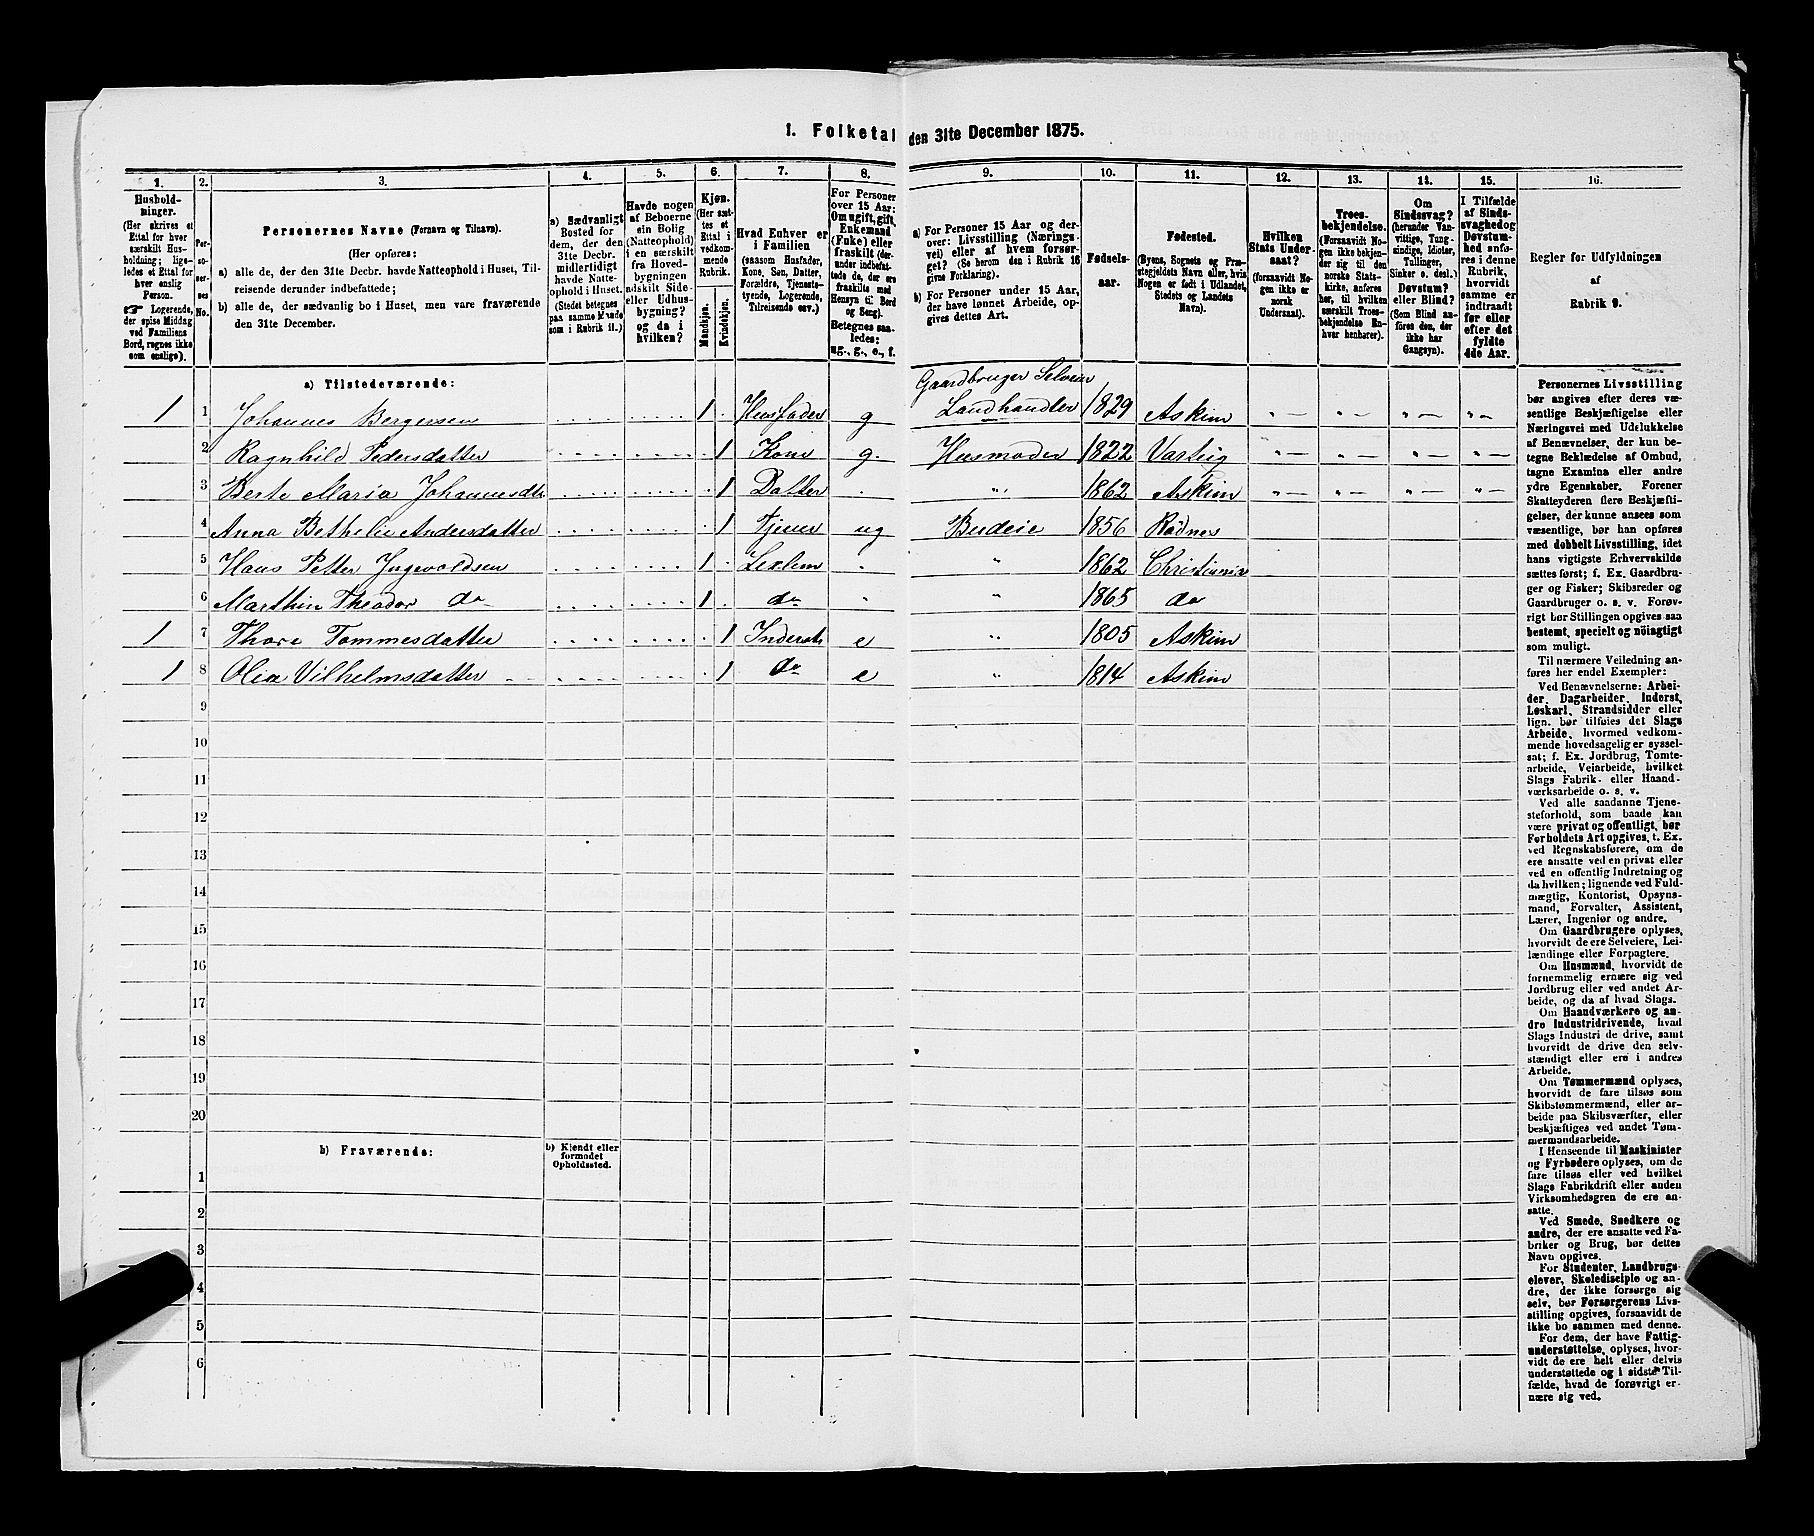 1. Folketal den 31te December 1875.
1. 2. 3. 4. 5. 6. 7. 8. 9. 10. 11. 12. 13. 14. 15. 16.
Hushold-
ninger.
(Her skrives et
Ettal for hver
særskilt Hus-
holdning; lige-
ledes et Ettal for
hver enslig
Person.
☞ Logerende,
der spise Middag
ved Familiens
Bord, regnes ikke
som enslige).
Per-
so-
ner-
nes
No.
Personernes Navne (Fornavn og Tilnavn).
(Her opføres:
a) alle de, der den 31te Decbr. havde Natteophold i Huset, Til-
reisende derunder indbefattede;
b) alle de, der sædvanlig bo i Huset, men vare fraværende
den 31te December.
a) Sædvanligt
Bosted for
dem, der den
31te Decbr.
midlertidigt
havde Natte-
ophold i Huset.
(Stedet betegnes
paa samme Maade
som i Rubrik 11.)
Havde nogen
af Beboerne
sin Bolig
(Natteophold)
i en særskilt
fra Hoved-
bygningen
adskilt Side-
eller Udhus-
bygning?
og da i
hvilken?
Kjøn.
(Her sæt-
tes et
Ettal i
vedkom-
mende
Rubrik.
Mandkjøn.
Kvindekjøn.
Hvad Enhver er
i Familien
(saasom Husfader,
Kone, Søn, Datter,
Forældre, Tjeneste-
tyende, Logerende,
Tilreisende osv.)
For Personer
over 15 Aar:
Om ugift, gift,
Enkemand
(Enke) eller
fraskilt (der-
under indbefat-
tede de, der ere
fraskilte med
Hensyn til Bord
og Seng).
Betegnes saa-
ledes:
ug., g., e., f.
a) For Personer 15 Aar og der-
over: Livsstilling (Nærings-
vei) eller af hvem forsør-
get? (Se herom den i Rubrik 16
givne Forklaring).
b) For Personer under 15 Aar,
der have lønnet Arbeide, op-
gives dettes Art.
Fødsels-
aar.
Fødested.
(Byens, Sognets og Præ-
stegjeldets Navn eller, hvis
Nogen er født i Udlandet,
Stedets og Landets
Navn).
Hvilken
Stats Under-
saat?
(forsaavidt No-
gen ikke er
norsk
Undersaat).
Troes-
bekjendelse.
(Forsaavidt No-
gen ikke bekjen-
der sig til den
norske Stats-
kirke, anføres
her, til hvilken
særskilt Troes-
bekjendelse En-
hver henhører).
Om
Sindssvag?
(herunder Van-
vittige, Tung-
sindige, Idioter,
Tullinger,
Sinker o. desl.)
Døvstum?
eller Blind?
(Som Blind an-
føres den, der
ikke har
Gangsyn).
I Tilfælde
af Sinds-
svaghed og
Døvstum-
hed anfø-
res i denne
Rubrik,
hvorvidt
samme er
indtraadt
før eller
efter det
fyldte
4de Aar.
Regler for Udfyldningen
af
Rubrik 9.
a) Tilstedeværende:
Gaardbruger Selveier
1 1 Johannes Bergersen 1 Husfader g Landhandler 1829 Askim
2 Ragnhild Pedersdatter 1 Kone g. Husmoder 1822 Varteig
3 Berte Maria Johannesdtr 1 Datter 1862 Askim
4 Anna Bethelie Andersdatter 1 Tjener ug Budeie 1856 Rødnes
5 Hans Petter Ingevoldsen 1 1862 Christiania
6 Marthin Theodor do 1 do 1865 do
1 7 Thore Tommesdatter 1 Inderst e 1805 Askim
1 8 Olea Vilhelmsdatter 1 do e 1814 Askim
9
10
11
12
13
14
15
16
17
18
19
20
b) Fraværende:
b) Kjendt eller
formodet
Opholdssted.
1
2
3
4
5
6
Personernes Livsstilling
bør angives efter deres væ-
sentlige Beskjæftigelse eller
Næringsvei med Udelukkelse
af Benævnelser, der kun be-
tegne Beklædelse af Ombud,
tagne Examina eller andre
ydre Egenskaber. Forener
Skatteyderen flere Beskjæfti-
gelser, der kunne ansees som
væsentlige, bør han opføres
med dobbelt Livsstilling, idet
hans vigtigste Erhvervskilde
sættes først; f. Ex. Gaardbru-
ger og Fisker; Skibsreder og
Gaardbruger o. s. v. Forøv-
rigt bør Stillingen opgives saa
bestemt, specielt og nøiagtigt
som muligt.
Til nærmere Veiledning an-
føres her endel Exempler:
Ved Benævnelserne: Arbei-
der, Dagarbeider, Inderst,
Løskarl, Strandsidder eller
lign. bør tilføies det Slags
Arbeide, hvormed vedkom-
mende hovedsagelig er syssel-
sat; f. Ex. Jordbrug, Tomte-
arbeide, Veiarbeide, hvilket
Slags Fabrik- eller Haand-
værksarbeide o. s. v.
Ved alle saadanne Tjene-
steforhold, som baade kan
være privat og offentligt, bør
Forholdets Art opgives, t. Ex.
ved Regnskabsførere, om de
ere ansatte ved en privat eller
ved en offentlig Indretning og
da hvilken; lignende ved Fuld-
mægtig, Kontorist, Opsyns-
mand, Forvalter, Assistent,
Lærer, Ingeniør og andre.
Om Gaardbrugere oplyses,
hvorvidt de ere Selveiere, Lei-
lændinge eller Forpagtere.
Om Husmænd, hvorvidt de
fornemmelig ernære sig ved
Jordbrug eller ved andet Ar-
beide, og da af hvad Slags.
Om Haandværkere og an-
dre Industridrivende, hvad
Slags Industri de drive, samt
hvorvidt de drive den selv-
stændigt eller ere i andres
Arbeide.
Om Tømmermænd oplyses,
hvorvidt de fare tilsøs som
Skibstømmermænd, eller ar-
beide paa Skibsværfter, eller
beskjæftiges ved andet Tøm-
mermandsarbeide.
I Henseende til Maskinister
og Fyrbødere oplyses, om de
fare tilsøs eller ved hvilket
Slags Fabrikdrift eller anden
Virksomhedsgren de ere an-
satte.
Ved Smede, Snedkere og
andre, der ere ansatte ved Fa-
briker og Brug, bør dettes
Navn opgives.
For Studenter, Landbrugs-
elever, Skoledisciple og an-
dre, der ikke forsørge sig
selv, bør Forsørgerens Livs-
stilling opgives, forsaavidt de
ikke bo sammen med denne.
For dem, der have Fattig-
understøttelse, oplyses, hvor-
vidt de ere helt eller delvis
understøttede og i sidste Til-
fælde, hvad de forøvrigt er-
nære sig ved.